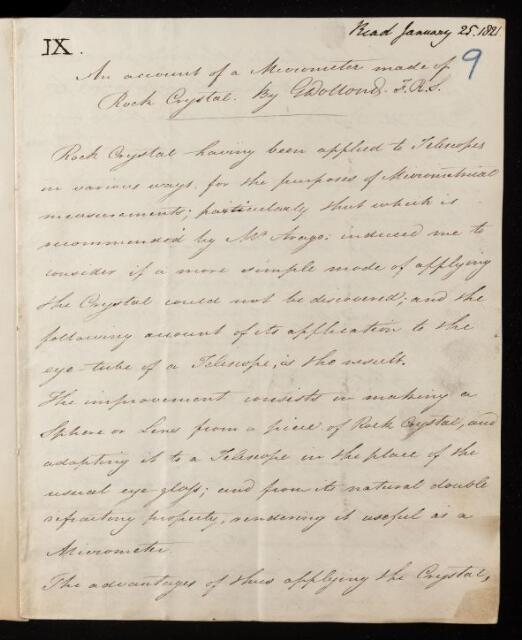 IX.
Read January 25. 1821
9
An account of a Micrometer made of
Rock Crystal. By G Dollond. F.R.S.
Rock Crystal having been applied to Telescopes
in various ways, for the purposes of Micrometrical
measurements; particularly that which is
recommended by Mr. Arago; induced me to
consider if a more simple mode of applying
the Crystal could not be discovered; and the
following account of its application to the
eye-tube of a Telescope, is the result.
The improvement consists in making a
Sphere or Lens from a piece of Rock Crystal, and
adapting it to a Telescope in the place of the
usual eye-glass; and from its natural double
refracting property, rendering it useful as a
Micrometer.
The advantages of thus applying the Crystal,